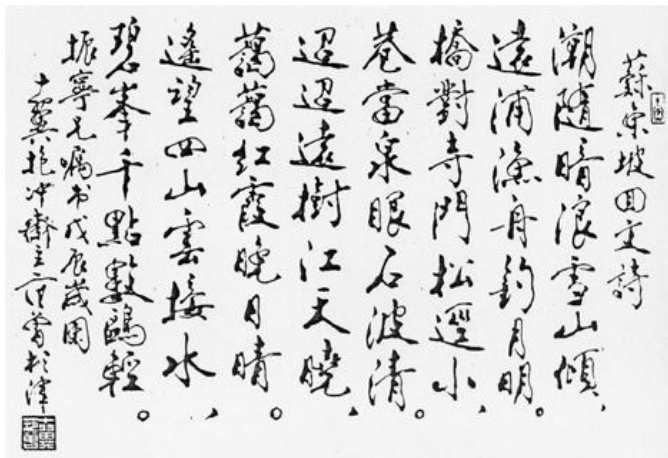 蘇東坡回文詩
潮隨暗浪雪山傾、
遠浦漁舟釣月明。
橋對寺門松逕小、
巷當泉眼石波清。
迢迢遠樹江天曉、
藹藹紅霞晚日晴。
遙望四山雲接水、
碧峯千點數鷗輕。
振寧兄嘱书戊辰歲
十翼抱冲齋主范曾於津